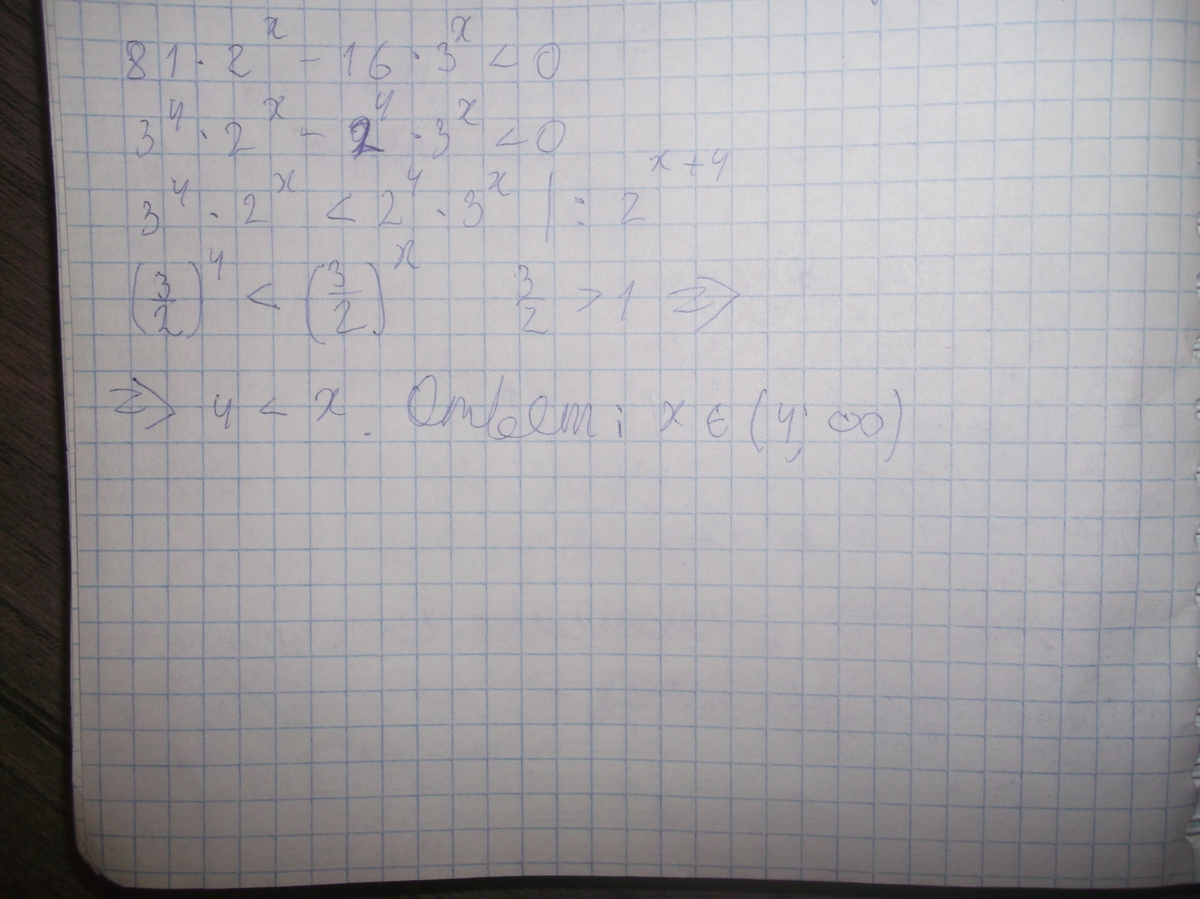 81 · 2^x - 16 · 3^x < 0
3^4 · 2^x - 2^4 · 3^x < 0
3^4 · 2^x < 2^4 · 3^x | : 2^(x+4)
(3/2)^4 < (3/2)^x 3/2 > 1 ⇒
⇒ 4 < x. Ответ: x ∈ (4; ∞)